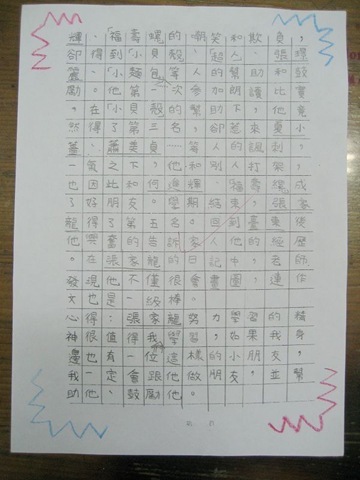 輝、「福壽螺」的嘲笑和欺負，
卻得到「小貝殼」、「超人」、張
麗、「小麵包」等人的幫助和鼓
勵。他第一次參加朗讀比賽
。在「小貝殼」的幫助下，他竟
然得了第三名，卻惹來莫小
蕙、蕭美貞……等人的諷刺，
一氣之下，他和別人打架，
也因此和何進輝、福壽螺成
了好朋友。學期結束，張家
龍得了第五名。回到臺東後
他興奮的告訴家人他的經歷
。在張家龍的日記中，老師
發現他不僅很會畫圖，連作
文也是一級棒。
心得：張家龍努力學習的精
神很值得我學習，如果我身
邊也有一位這樣的小朋友，
我一定會跟他做朋友，並幫
助他、鼓勵他。